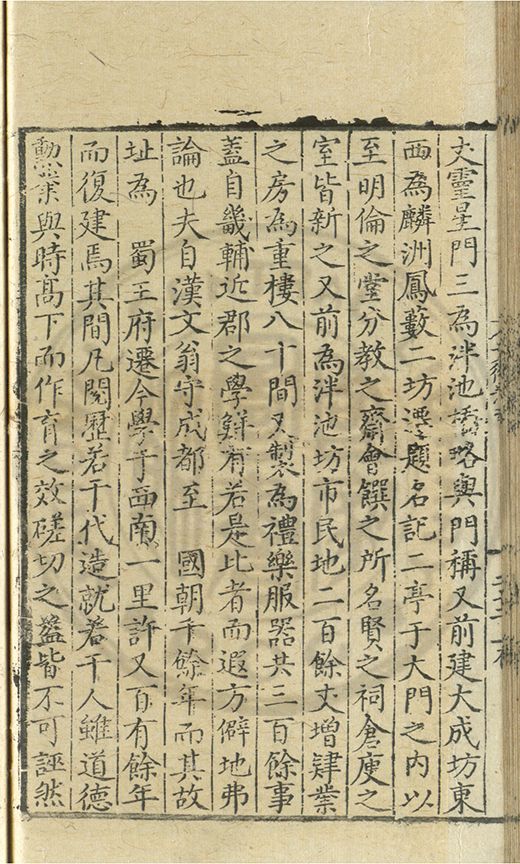 丈靈星門三為泮池橋略與門稱又前建大成坊東
西為麟洲鳳藪二坊遷題名記二亭于大門之內以
至明倫之堂分教之齋會饌之所名賢之祠倉庾之
室皆新之又前為泮池坊市民地二百餘丈增肄業
之房為重樓八十間又製為禮樂服器共三百餘事
蓋自畿輔近郡之學鮮有若是比者而遐方僻地弗
論也夫自漢文翁守成都至　國朝千餘年而其故
址為　蜀王府遷今學于西南一里許又百有餘年
而復建焉其間凡閱歷若干代造就若干人雖道德
勲業與時髙下而作育之效磋切之益皆不可誣然